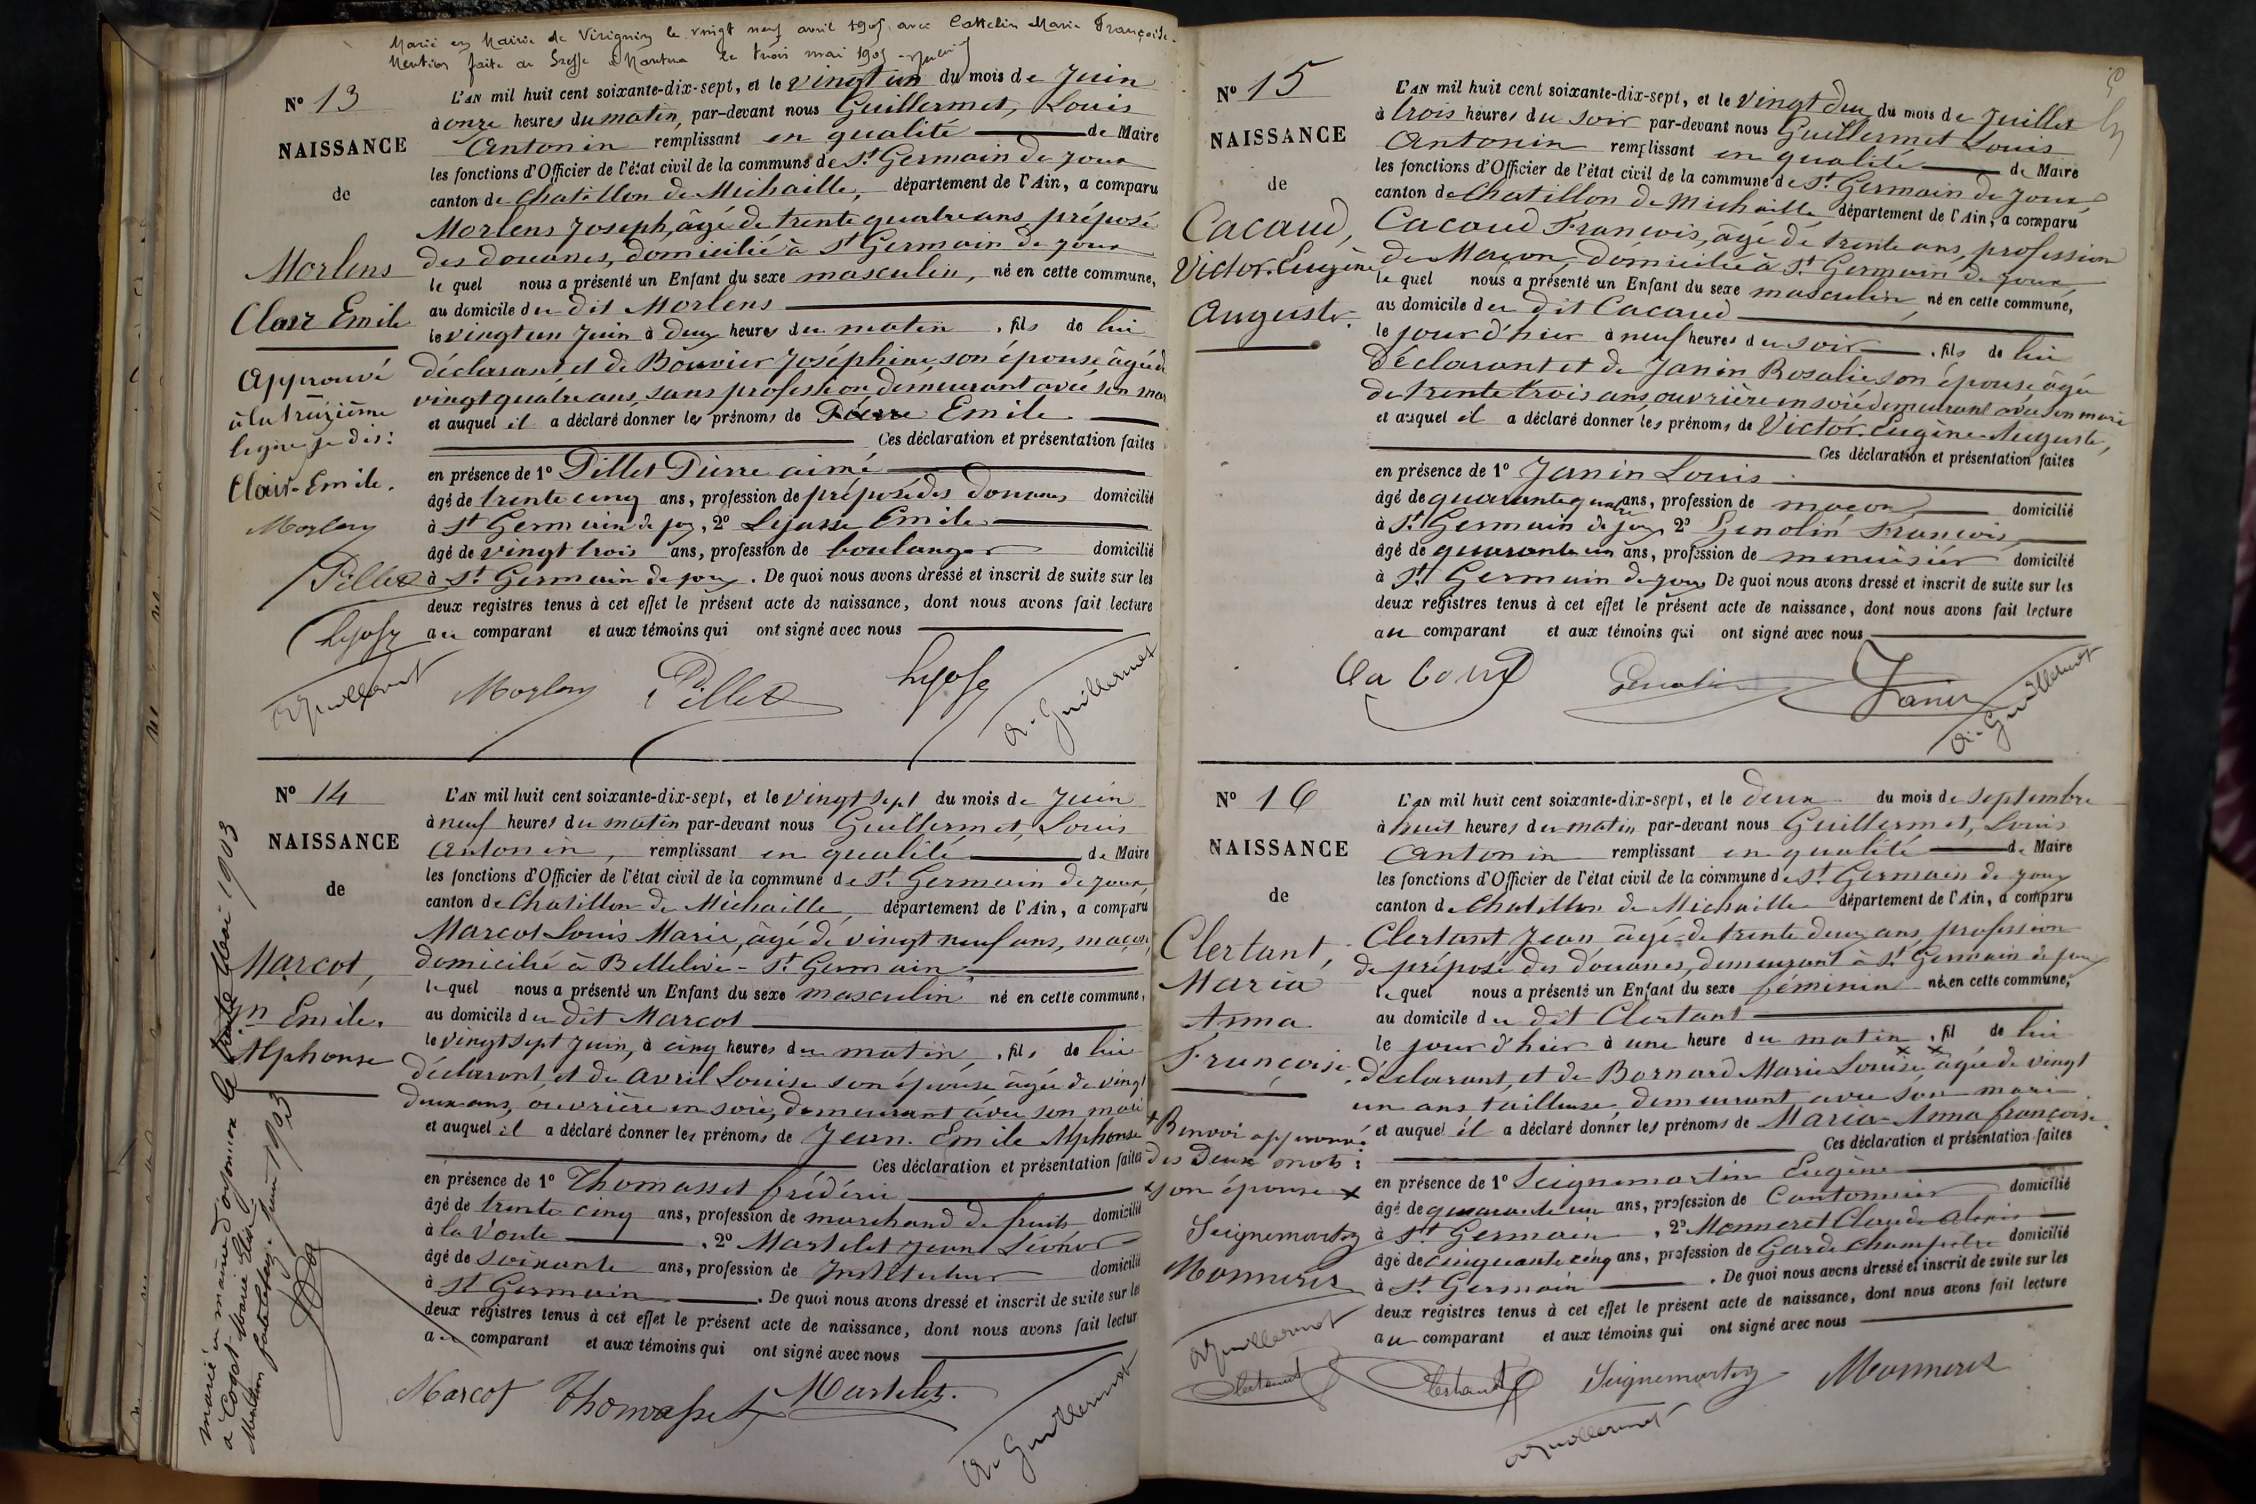 Marié en Mairie de Virignin le vingt neuf avril 1905 avec Cattelin Marie Françoise.
Mention faite au Greffe à Nantua le trois mai 1905
Nº 13
NAISSANCE
de
Morlens
Clair Emile
Approuvé
à la treizième
ligne je dis:
Clair-Emile.
Morlens
Pillet
Lejosse
AGuillermet
L'AN mil huit cent soixante-dix-sept, et le vingt un du mois de Juin
à onze heures du matin, par-devant nous Guillermet, Louis
Antonin remplissant en qualité de Maire
les fonctions d'Officier de l'état civil de la commune de St Germain de joux
canton de Chatillon de Michaille, département de l'Ain, a comparu
Morlens Joseph, âgé de trente quatre ans, préposé
des douanes, domicilié à St Germain de joux
le quel nous a présenté un Enfant du sexe masculin, né en cette commune,
au domicile du dit Morlens
le vingt un Juin à deux heures du matin, fils de lui
déclarant et de Bouvier Joséphine, son épouse âgée de
vingt quatre ans, sans profession demeurant avec son mari
et auquel il a déclaré donner les prénoms de Pierre Emile
Ces déclaration et présentation faites
en présence de 1º Pillet Pierre aimé
âgé de trente cinq ans, profession de préposé des douanes domicilié
à St Germain de joux, 2º Lejosse Emile
âgé de vingt trois ans, profession de boulanger domicilié
à St Germain de joux. De quoi nous avons dressé et inscrit de suite sur les
deux registres tenus à cet effet le présent acte de naissance, dont nous avons fait lecture
au comparant et aux témoins qui ont signé avec nous
Morlens Pillet Lejosse A. Guillermet
Nº 14
NAISSANCE
de
Marcot,
Jn Emile.
Alphonse
marié en mairie d'oyonnax le trente Mai 1903
à Cogat Marie
Mention faite Juin 1903
L'AN mil huit cent soixante-dix-sept, et le vingt sept du mois de Juin
à neuf heures du matin par-devant nous Guillermet, Louis
Antonin, remplissant en qualité de Maire
les fonctions d'Officier de l'état civil de la commune de St Germain de joux,
canton de Chatillon de Michaille, département de l'Ain, a comparu
Marcot Louis Marie, âgé de vingt neuf ans, maçon,
domicilié à Belleive - St Germain
le quel nous a présenté un Enfant du sexe masculin né en cette commune,
au domicile du dit Marcot
le vingt sept Juin, à cinq heures du matin, fils de lui
déclarant, et de Avril Louise son épouse âgée de vingt
deux ans, ouvrière en soie, demeurant avec son mari
et auquel il a déclaré donner les prénoms de Jean. Emile Alphonse
Ces déclaration et présentation faites
en présence de 1º Thomasset frédéric
âgé de trente cinq ans, profession de marchand de fruits domicilié
à la Voute, 2º Martelet Jean Léonor
âgé de soixante ans, profession de Instituteur domicilié
à St Germain. De quoi nous avons dressé et inscrit de suite sur les
deux registres tenus à cet effet le présent acte de naissance, dont nous avons fait lecture
au comparant et aux témoins qui ont signé avec nous
Marcot Thomasset Martelet. A. Guillermet
Nº 15
NAISSANCE
de
Cacaud,
Victor. Eugène
Auguste.
L'AN mil huit cent soixante-dix-sept, et le vingt deux du mois de Juillet
à trois heures du soir par-devant nous Guillermet Louis
Antonin remplissant en qualité de Maire
les fonctions d'Officier de l'état civil de la commune de St Germain de Joux,
canton de Chatillon de Michaille département de l'Ain, a comparu
Cacaud Francois, âgé de trente ans, profession
de Maçon, domicilié à St Germain de joux,
le quel nous a présenté un Enfant du sexe masculin, né en cette commune,
au domicile du dit Cacaud
le jour d'hier à neuf heures du soir, fils de lui
déclarant et de Janin Rosalie son épouse âgée
de trente trois ans, ouvrière en soie demeurant avec son mari
et auquel il a déclaré donner les prénoms de Victor. Eugène-Auguste,
Ces déclaration et présentation faites
en présence de 1º Janin Louis
âgé de quarante quatre ans, profession de maçon domicilié
à St Germain de joux 2º Genolin Francois
âgé de quarante un ans, profession de menuisier domicilié
à St Germain de joux De quoi nous avons dressé et inscrit de suite sur les
deux registres tenus à cet effet le présent acte de naissance, dont nous avons fait lecture
au comparant et aux témoins qui ont signé avec nous
Genolin Janin A. Guillermet
Nº 16
NAISSANCE
de
Clertant,
Maria
Anna
Françoise.
+ Renvoi approuvé
des deux mots:
son épouse x
Seignemartin
Monneret
AGuillermet
Clertant
L'AN mil huit cent soixante-dix-sept, et le deux du mois de septembre
à huit heures du matin par-devant nous Guillermet, Louis
Antonin remplissant en qualité de Maire
les fonctions d'Officier de l'état civil de la commune de St Germain de joux
canton de Chatillon de Michaille département de l'Ain, a comparu
Clertant Jean âgé de trente deux ans profession
de préposé des douanes, demeurant à St Germain de joux
le quel nous a présenté un Enfant du sexe féminin née en cette commune,
au domicile du dit Clertant
le jour d'hier à une heure du matin, fil de lui
déclarant, et de Bornard Marie Louise x x âgée de vingt
un ans tailleuse, demeurant avec son mari
et auquel il a déclaré donner les prénoms de Maria-Anna françoise.
Ces déclaration et présentation faites
en présence de 1º Seignemartin Eugène
âgé de quarante un ans, profession de Cantonnier domicilié
à St Germain, 2º Monneret Claude Alexis
âgé de cinquante cinq ans, profession de Garde Champetre domicilié
à St Germain. De quoi nous avons dressé et inscrit de suite sur les
deux registres tenus à cet effet le présent acte de naissance, dont nous avons fait lecture
au comparant et aux témoins qui ont signé avec nous
Clertant Seignemartin Monneret
AGuillermet